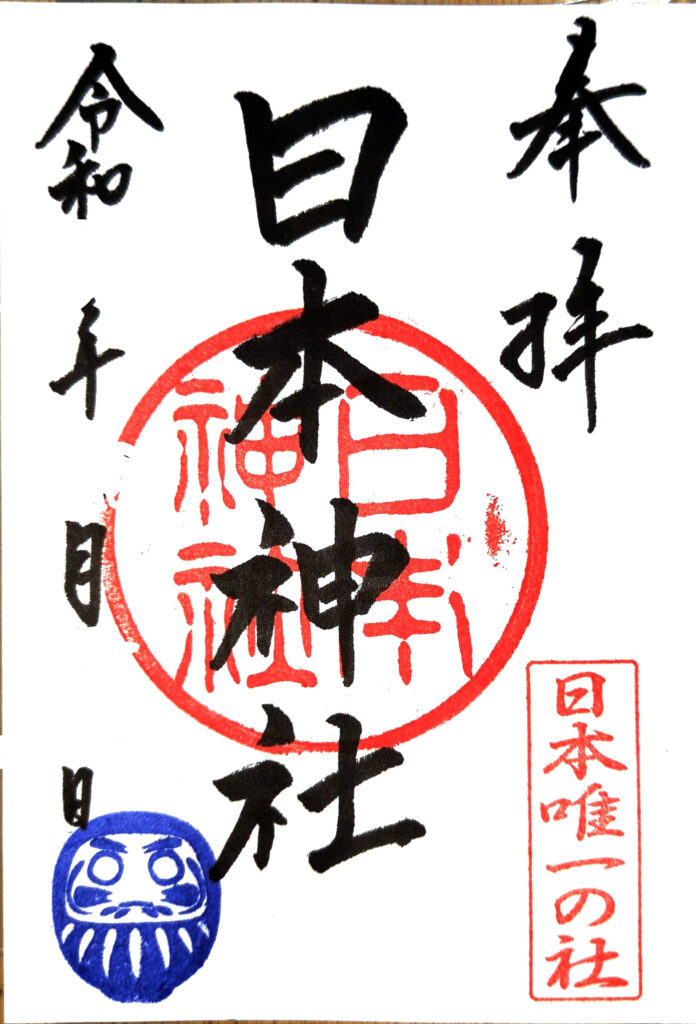 奉拝
日本神社
日本神社
日本唯一の社
令和 年 月 日